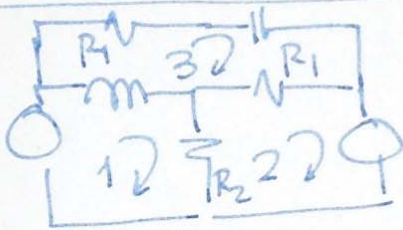 R1 3 R1
1 R2 2